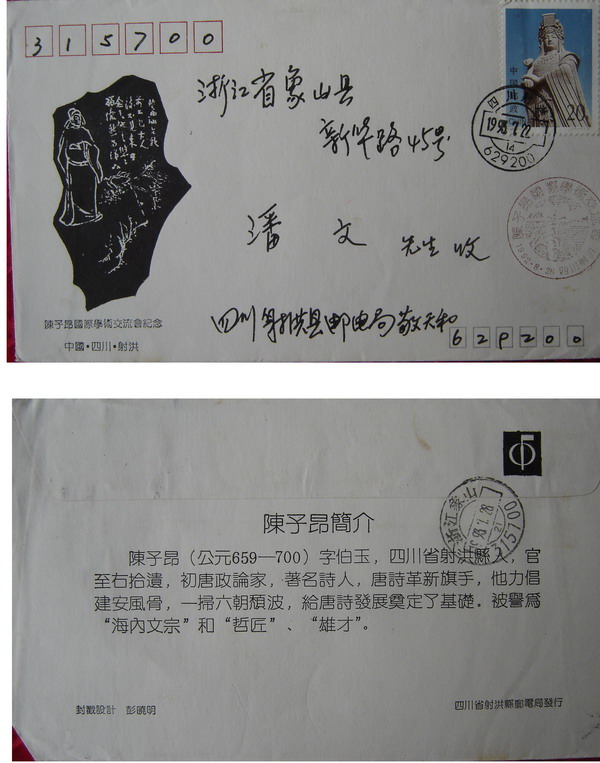 315700
浙江省象山县
新华路45号
潘文 先生 收
四川射洪县邮电局敬天和
629200
陳子昂國際學術交流會紀念
中國·四川·射洪
中国邮政
20分
四川
1993.7.22
14
629200
陳子昂國際學術交流會
陳子昂簡介
陳子昂（公元659—700）字伯玉，四川省射洪縣人，官
至右拾遺，初唐政論家，著名詩人，唐詩革新旗手，他力倡
建安風骨，一掃六朝頹波，給唐詩發展奠定了基礎。被譽爲
“海內文宗”和“哲匠”、“雄才”。
浙江象山
封戳設計 彭曉明
四川省射洪縣郵電局發行